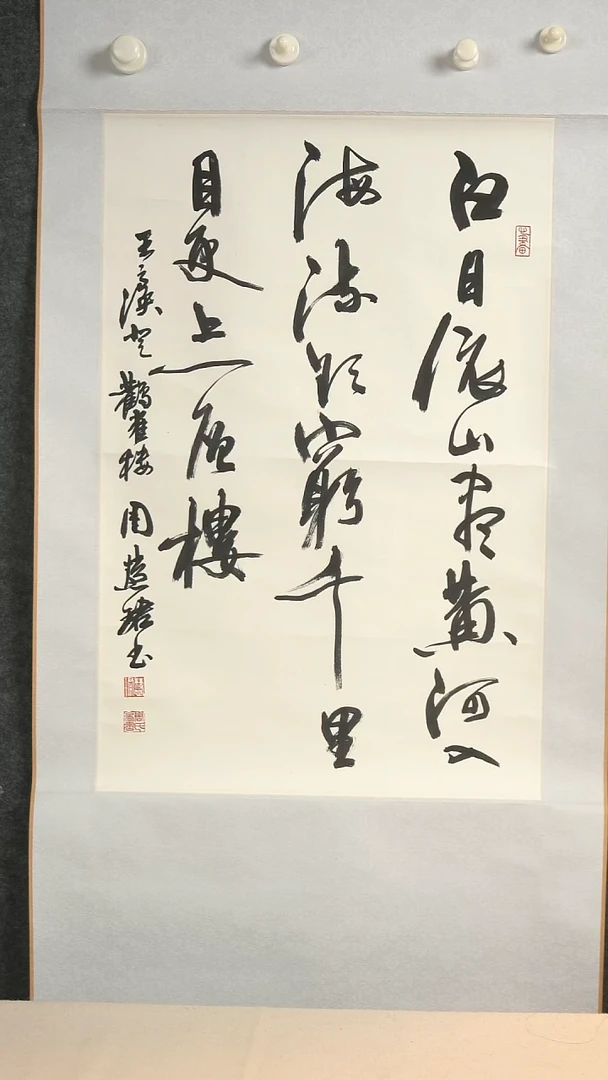 白日依山盡黄河入
海流欲窮千里
目更上一層樓
王之渙登鸛雀楼 周慧珺书